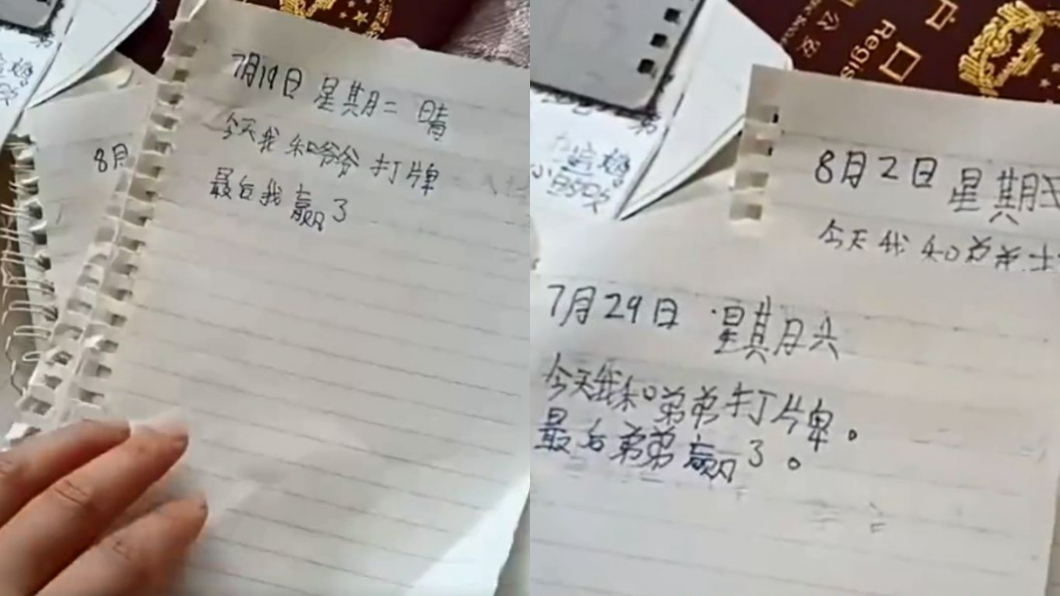 7月19日 星期二 晴
今天我和爷爷打牌
最后我赢了
8月
8月2日 星期
今天我和弟弟
7月29日 星期六
今天我和弟弟打牌。
最后弟弟赢了。
Regis